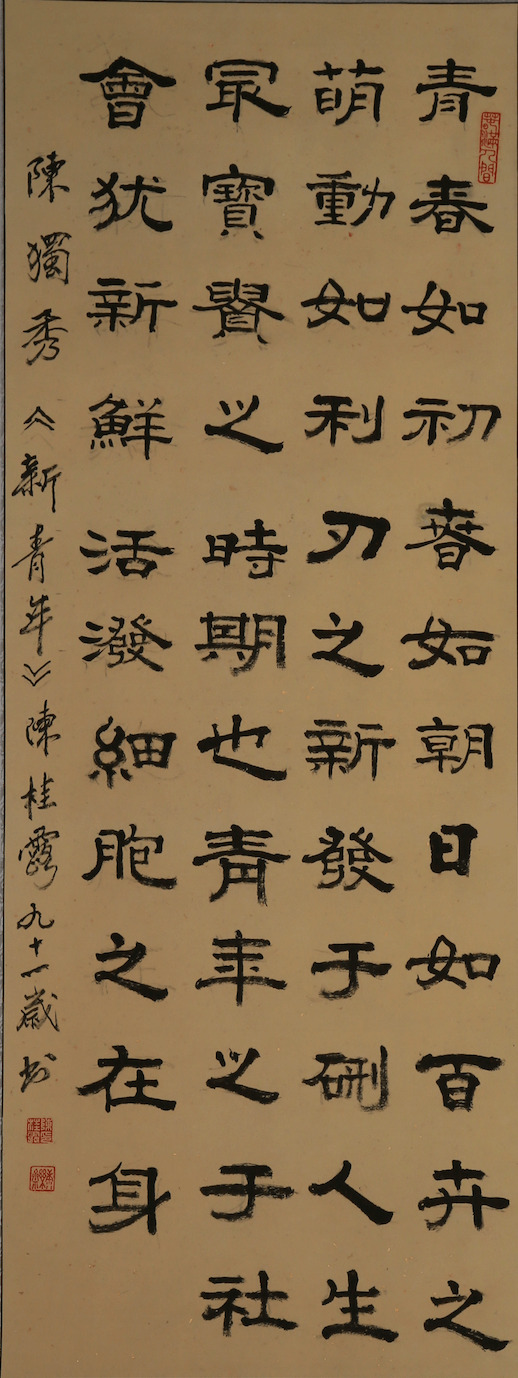 青春如初春如朝日如百卉之
萌動如利刃之新發于硎人生
冣寶貴之時期也青年之于社
會犹新鮮活潑細胞之在身
陳獨秀《新青年》陳桂九十一歲书